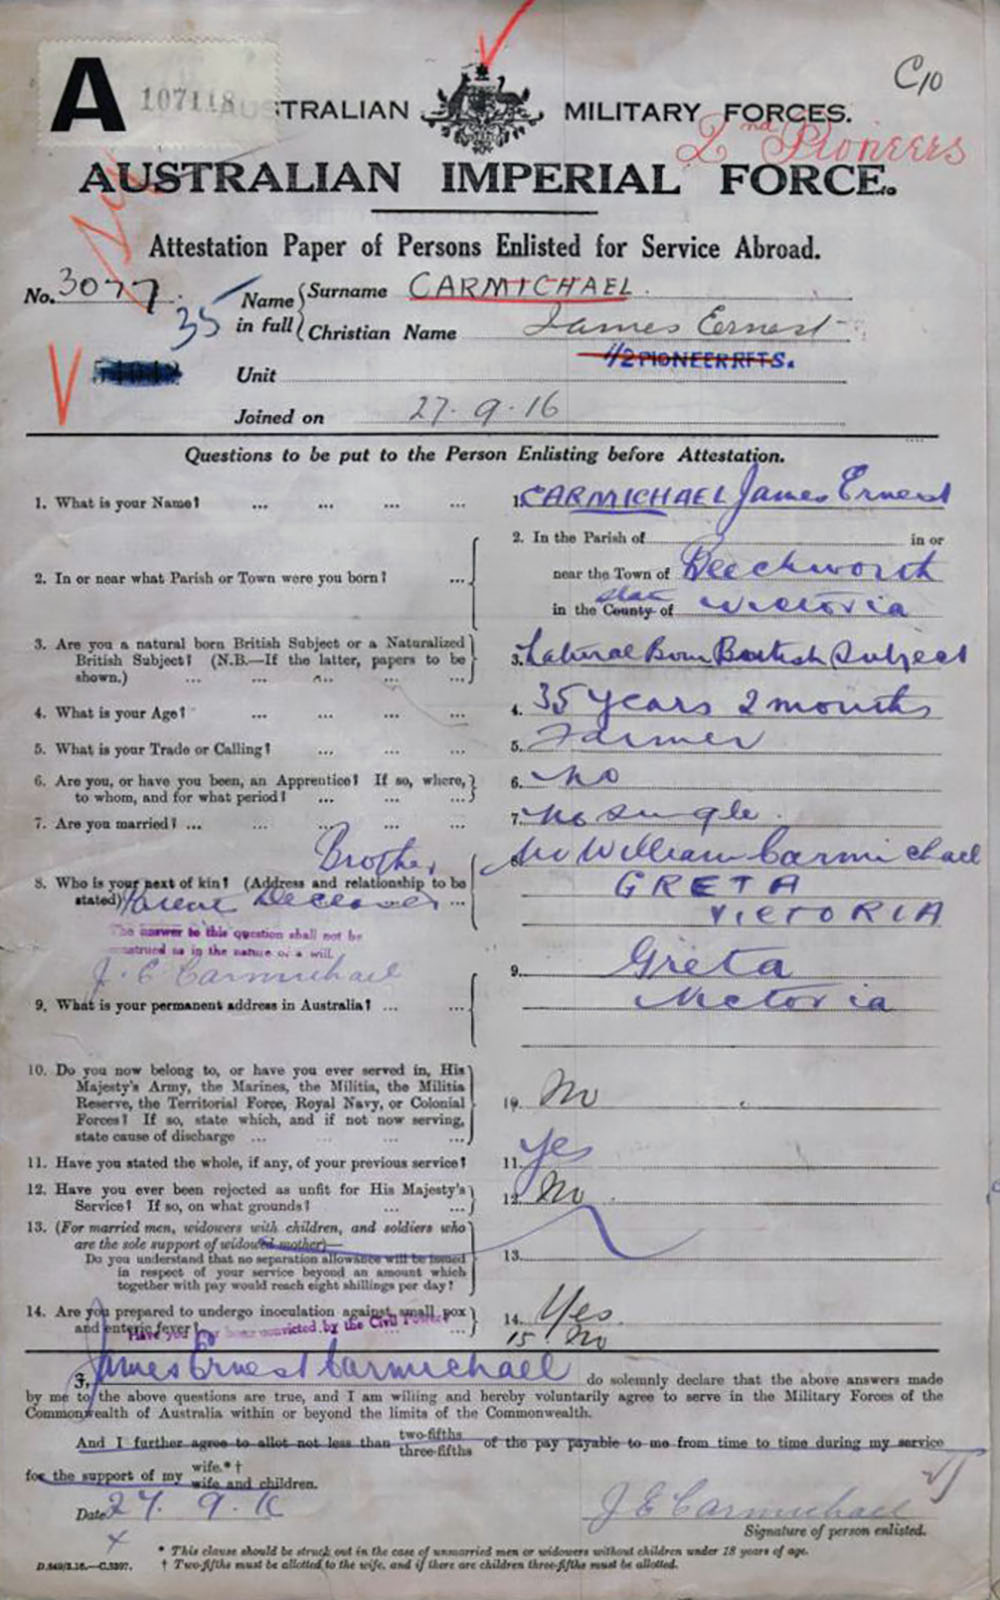 C/10
A 107118
AUSTRALIAN MILITARY FORCES.
2nd Pioneers
AUSTRALIAN IMPERIAL FORCE.
Attestation Paper of Persons Enlisted for Service Abroad.
No. 3077 Name in full Surname CARMICHAEL.
35 Christian Name James Ernest
Unit 4/2 PIONEER RFTS.
Joined on 27.9.16
Questions to be put to the Person Enlisting before Attestation.
1. What is your Name? ... ... ... ... 1. CARMICHAEL James Ernest
2. In or near what Parish or Town were you born? ... 2. In the Parish of in or
near the Town of Beechworth
in the County of state Victoria
3. Are you a natural born British Subject or a Naturalized
British Subject? (N.B.—If the latter, papers to be
shown.) ... ... ... ... ... 3. Natural Born British Subject
4. What is your Age? ... ... ... ... 4. 35 years 2 months
5. What is your Trade or Calling? ... ... ... 5. Farmer
6. Are you, or have you been, an Apprentice? If so, where,
to whom, and for what period? ... ... ... 6. no
7. Are you married? ... ... ... ... ... 7. No Single.
Brother 8. Mr William Carmichael
8. Who is your next of kin? (Address and relationship to be
stated) Parents Deceased ... GRETA
VICTORIA
The answer to this question shall not be
construed as in the nature of a will.
J. E Carmichael
9. What is your permanent address in Australia? ... ... 9. Greta
Victoria
10. Do you now belong to, or have you ever served in, His
Majesty's Army, the Marines, the Militia, the Militia
Reserve, the Territorial Force, Royal Navy, or Colonial
Forces? If so, state which, and if not now serving,
state cause of discharge ... ... ... ... 10. No
11. Have you stated the whole, if any, of your previous service? 11. Yes
12. Have you ever been rejected as unfit for His Majesty's
Service? If so, on what grounds? ... ... 12. No
13. (For married men, widowers with children, and soldiers who
are the sole support of widowed mother)—
Do you understand that no separation allowance will be issued
in respect of your service beyond an amount which
together with pay would reach eight shillings per day? 13.
14. Are you prepared to undergo inoculation against small pox
and enteric fever? ... 14. Yes
Have you ever been convicted by the Civil Power 15. No
I, James Ernest Carmichael do solemnly declare that the above answers made
by me to the above questions are true, and I am willing and hereby voluntarily agree to serve in the Military Forces of the
Commonwealth of Australia within or beyond the limits of the Commonwealth.
And I further agree to allot not less than two-fifths three-fifths of the pay payable to me from time to time during my service
for the support of my wife.*† wife and children.
Date 27. 9. 16
J E Carmichael
Signature of person enlisted.
* This clause should be struck out in the case of unmarried men or widowers without children under 18 years of age.
D.849/3.16.—C.5397. † Two-fifths must be allotted to the wife, and if there are children three-fifths must be allotted.